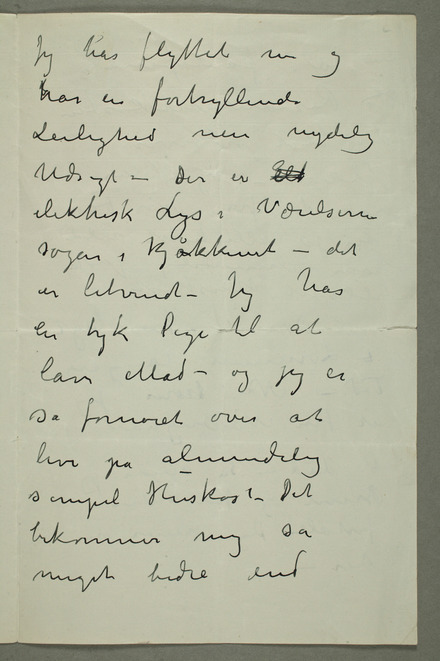 Jeg har flyttet nu og
har en fortryllende
Leilighed men nydelig
Udsigt – Der er
elektrisk Lys i Værelserne
sogar i Kjøkkenet – det
er
en tyk Pige til at
lave Mad – og jeg er
sa fornøiet over at
leve pa almindelig
simpel Huskost – Det
bekommer mig sa
meget bedre end